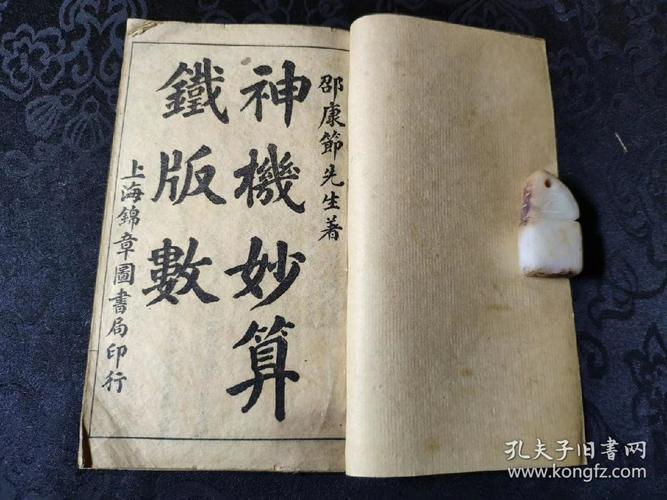 邵康節先生著
神機妙算
鐵版數
上海錦章圖書局印行
孔夫子旧书网
www.kongfz.com